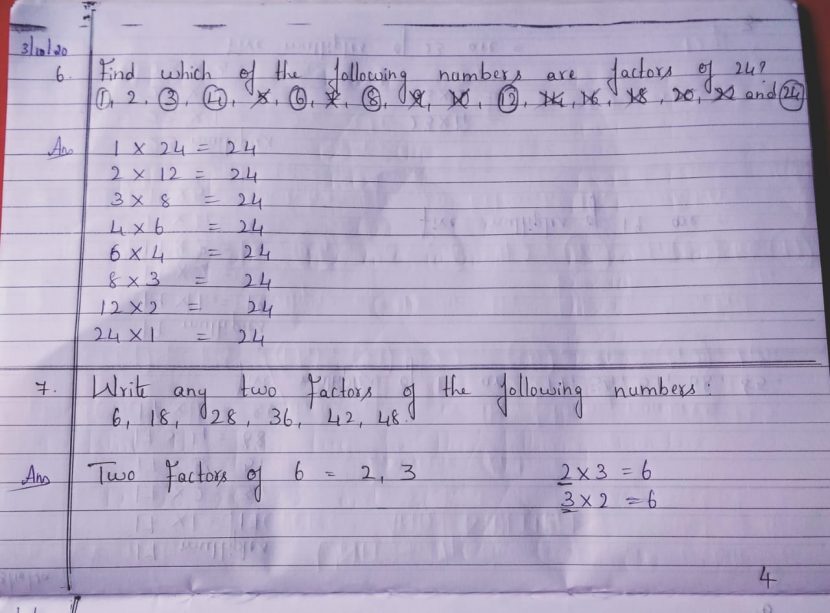 3/10/20
6. Find which of the following numbers are factors of 24?
1, 2, 3, 4, 5, 6, 7, 8, 9, 10, 12, 14, 16, 18, 20, 22 and 24
Ans 1 × 24 = 24
2 × 12 = 24
3 × 8 = 24
4 × 6 = 24
6 × 4 = 24
8 × 3 = 24
12 × 2 = 24
24 × 1 = 24
7. Write any two factors of the following numbers:
6, 18, 28, 36, 42, 48.
Ans Two Factors of 6 = 2, 3 2 × 3 = 6
3 × 2 = 6
4